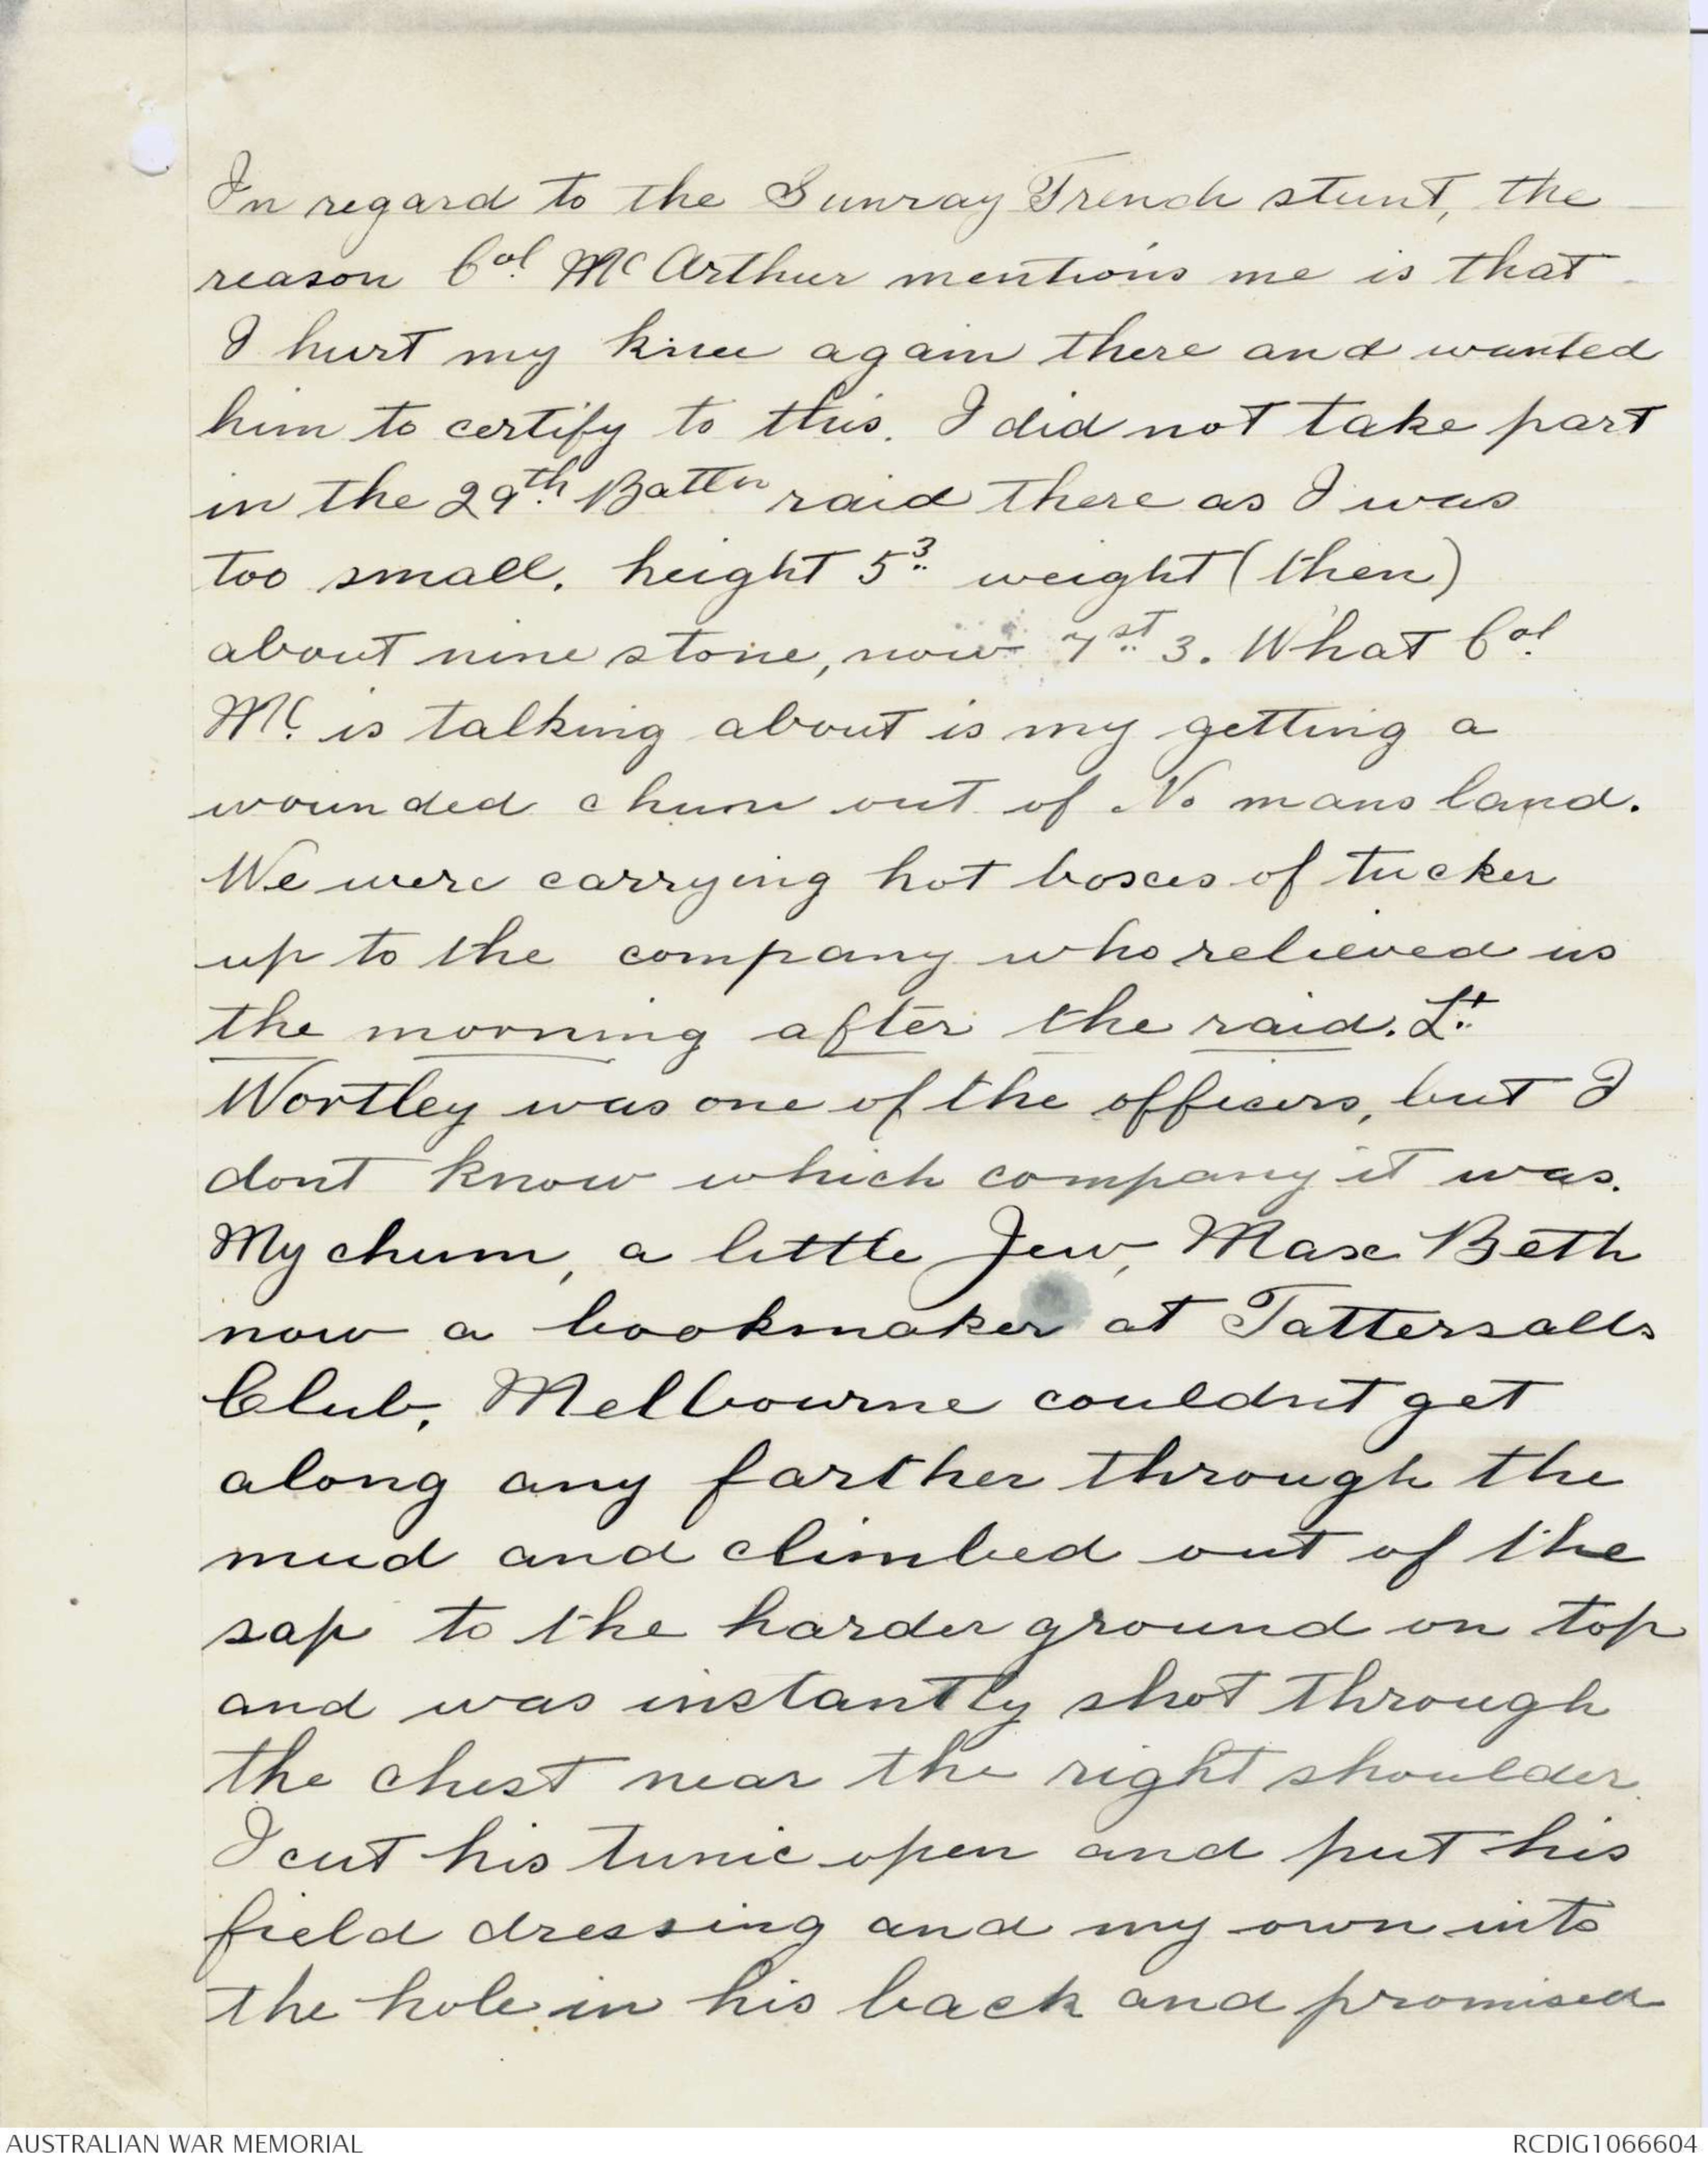 In regard to the Sunray Trench stunt, the
reason Col. McArthur mentions me is that
I hurt my knee again there and wanted
him to certify to this. I did not take part
in the 29th Battn raid there as I was
too small. height 5 3 weight (then)
about nine stone, now 7st 3. What Col.
Mc. is talking about is my getting a
wounded chum out of No mans land.
We were carrying hot boxes of tucker
up to the company who relieved us
the morning after the raid. Lt.
Wortley was one of the officers, but I
dont know which company it was.
My chum, a little Jew, Max Beth
now a bookmaker at Tattersalls
Club, Melbourne couldnt get
along any farther through the
mud and climbed out of the
sap to the harder ground on top
and was instantly shot through
the chest near the right shoulder.
I cut his tunic open and put his
field dressing and my own into
the hole in his back and promised
AUSTRALIAN WAR MEMORIAL
RCDIG1066604